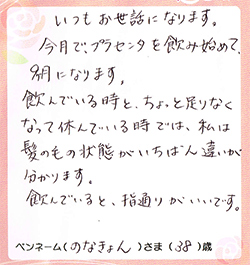 いつもお世話になります。
今月で、プラセンタを飲み始めて、
8月になります。
飲んでいる時と、ちょっと足りなく
なって休んでいる時では、私は
髪のもの状態がいちばん違いが
分かります。
飲んでいると、指通りがいいです。
ペンネーム(のなきょん)さま(38)歳